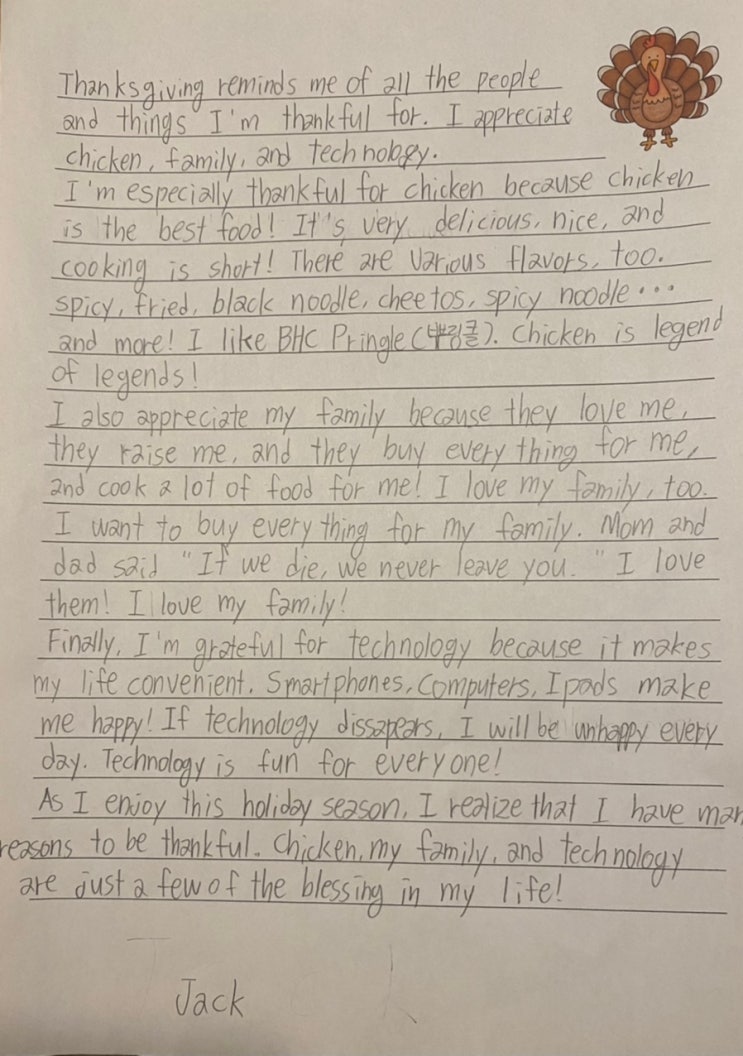 Thanksgiving reminds me of all the people
and things I'm thankful for. I appreciate
chicken, family, and technology.
I'm especially thankful for chicken because chicken
is the best food! It's very delicious, nice, and
cooking is short! There are various flavors, too.
spicy, fried, black noodle, cheetos, spicy noodle...
and more! I like BHC Pringle (뿌링클). Chicken is legend
of legends!
I also appreciate my family because they love me,
they raise me, and they buy every thing for me,
and cook a lot of food for me! I love my family, too.
I want to buy every thing for my family. Mom and
dad said "If we die, we never leave you." I love
them! I love my family!
Finally, I'm grateful for technology because it makes
my life convenient. Smartphones, Computers, Ipads make
me happy! If technology dissapears, I will be unhappy every
day. Technology is fun for every one!
As I enjoy this holiday season, I realize that I have man
reasons to be thankful. Chicken, my family, and technology
are just a few of the blessing in my life!
Jack